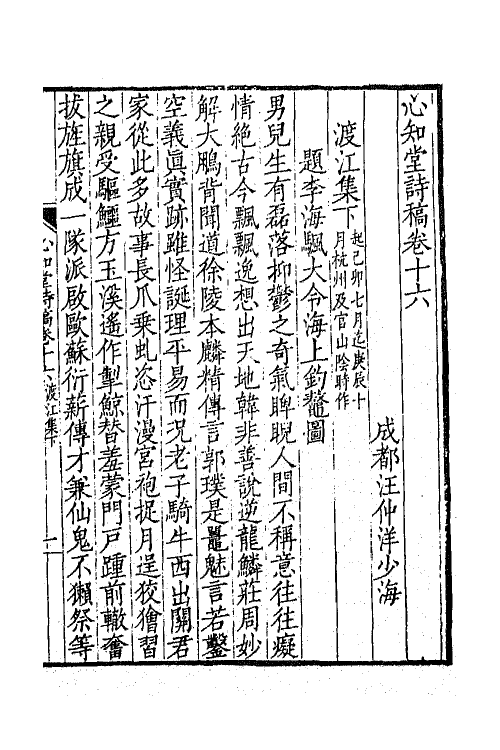 心知堂詩稿卷十六
成都汪仲洋少海
渡江集下起己卯七月迄庚辰十
月杭州及官山陰時作
題李海颿大令海上釣鼇圖
男兒生有磊落抑鬱之奇氣睥睨人間不稱意往往癡
情絕古今飄飄逸想出天地韓非善說逆龍鱗莊周妙
解大鵬背聞道徐陵本麟精傳言郭璞是鼉魅言若鑿
空義眞實跡雖怪誕理平易而况老子騎牛西出關君
家從此多故事長爪乘虬恣汗漫宮袍捉月逞狡獪習
之親受驅鱷方玉溪遙作掣鯨替羞蒙門戸踵前轍奮
拔旌旗成一隊派啟歐蘇衍薪傳才兼仙鬼不獺祭等
心知堂詩稿卷十六 渡江集下 一